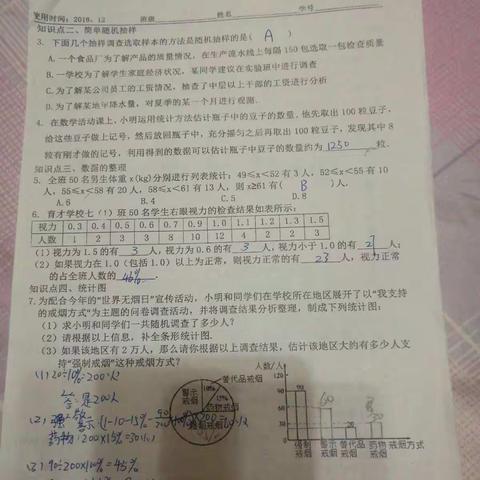 使用时间：2018．12 班级 姓名 学号
知识点二、简单随机抽样
3．下面几个抽样调查选取样本的方法是随机抽样的是( A )
A．一个食品厂为了解产品的质量情况，在生产流水线上每隔150包选取一包检查质量
B．一学校为了解学生家庭经济状况，某同学建议在实验班中进行调查
C．为了解某公司员工的工资情况，抽查了中层以上干部的工资进行分析
D．为了解某地年降水量，对夏季的某一个月进行观测．
4．在数学活动课上，小明运用统计方法估计瓶子中的豆子的数量．他先取出100粒豆子，
给这些豆子做上记号，然后放回瓶子中，充分摇匀之后再取出100粒豆子，发现其中8
粒有刚才做的记号，利用得到的数据可以估计瓶子中豆子的数量约为 1250 粒．
知识点三、数据的整理
5．全班50名男生体重x(kg)分别进行列表统计：49≤x＜52有3人，52≤x＜55有10
人，55≤x＜58有20人，58≤x＜61有13人，则x≥61有( B )人．
A.6 B.4 C.5 D.8
6．育才学校七（1）班50名学生右眼视力的检查结果如表所示：
视力 0.3 0.4 0.5 0.6 0.7 0.9 1.0 1.1 1.2 1.3 1.5
人数 1 2 3 3 8 10 12 4 2 2 3
（1）视力为1.5的有 3 人，视力为0.6的有 3 人，视力小于1.0的有 27 人；
（2）如果视力在1.0（包括1.0）以上为正常，则视力正常的有 23 人，视力正常
的占全班人数的 46% ．
知识点四、统计图
7．为配合今年的“世界无烟日”宣传活动，小明和同学们在学校所在地区展开了以“我支持
的戒烟方式”为主题的问卷调查活动，并将调查结果分析整理，制成下列统计图：
（1）求小明和同学们一共随机调查了多少人？
（2）请根据以上信息，补全条形统计图．
（3）如果该地区有2万人，那么请你根据以上调查结果，估计该地区大约有多少人支
持“强制戒烟”这种戒烟方式？
(1) 20÷10%=200人
答 是200人
药物：200×15%=30(人)
(3) 90÷200×100%=45%
替代品戒烟
10%
警示戒烟
15%
药物戒烟
强制戒烟
人数/人
120
90
60
30
0
90
60
20
强制戒烟 警示戒烟 替代品戒烟 药物戒烟 戒烟方式